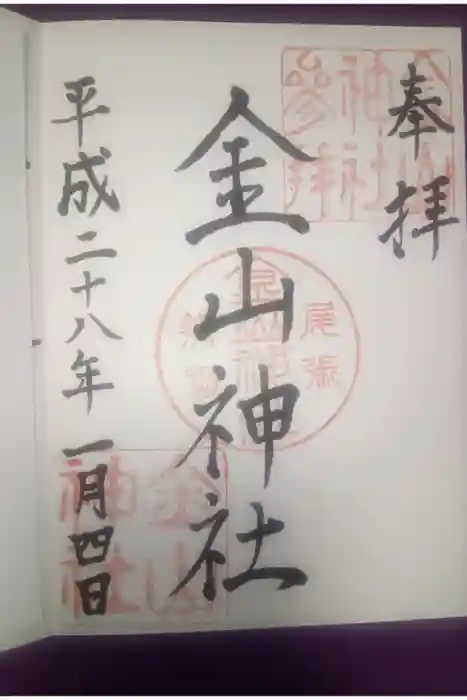 奉拝
金山神社
平成二十八年一月四日
金山
神社
参拝
尾張
金山
神社